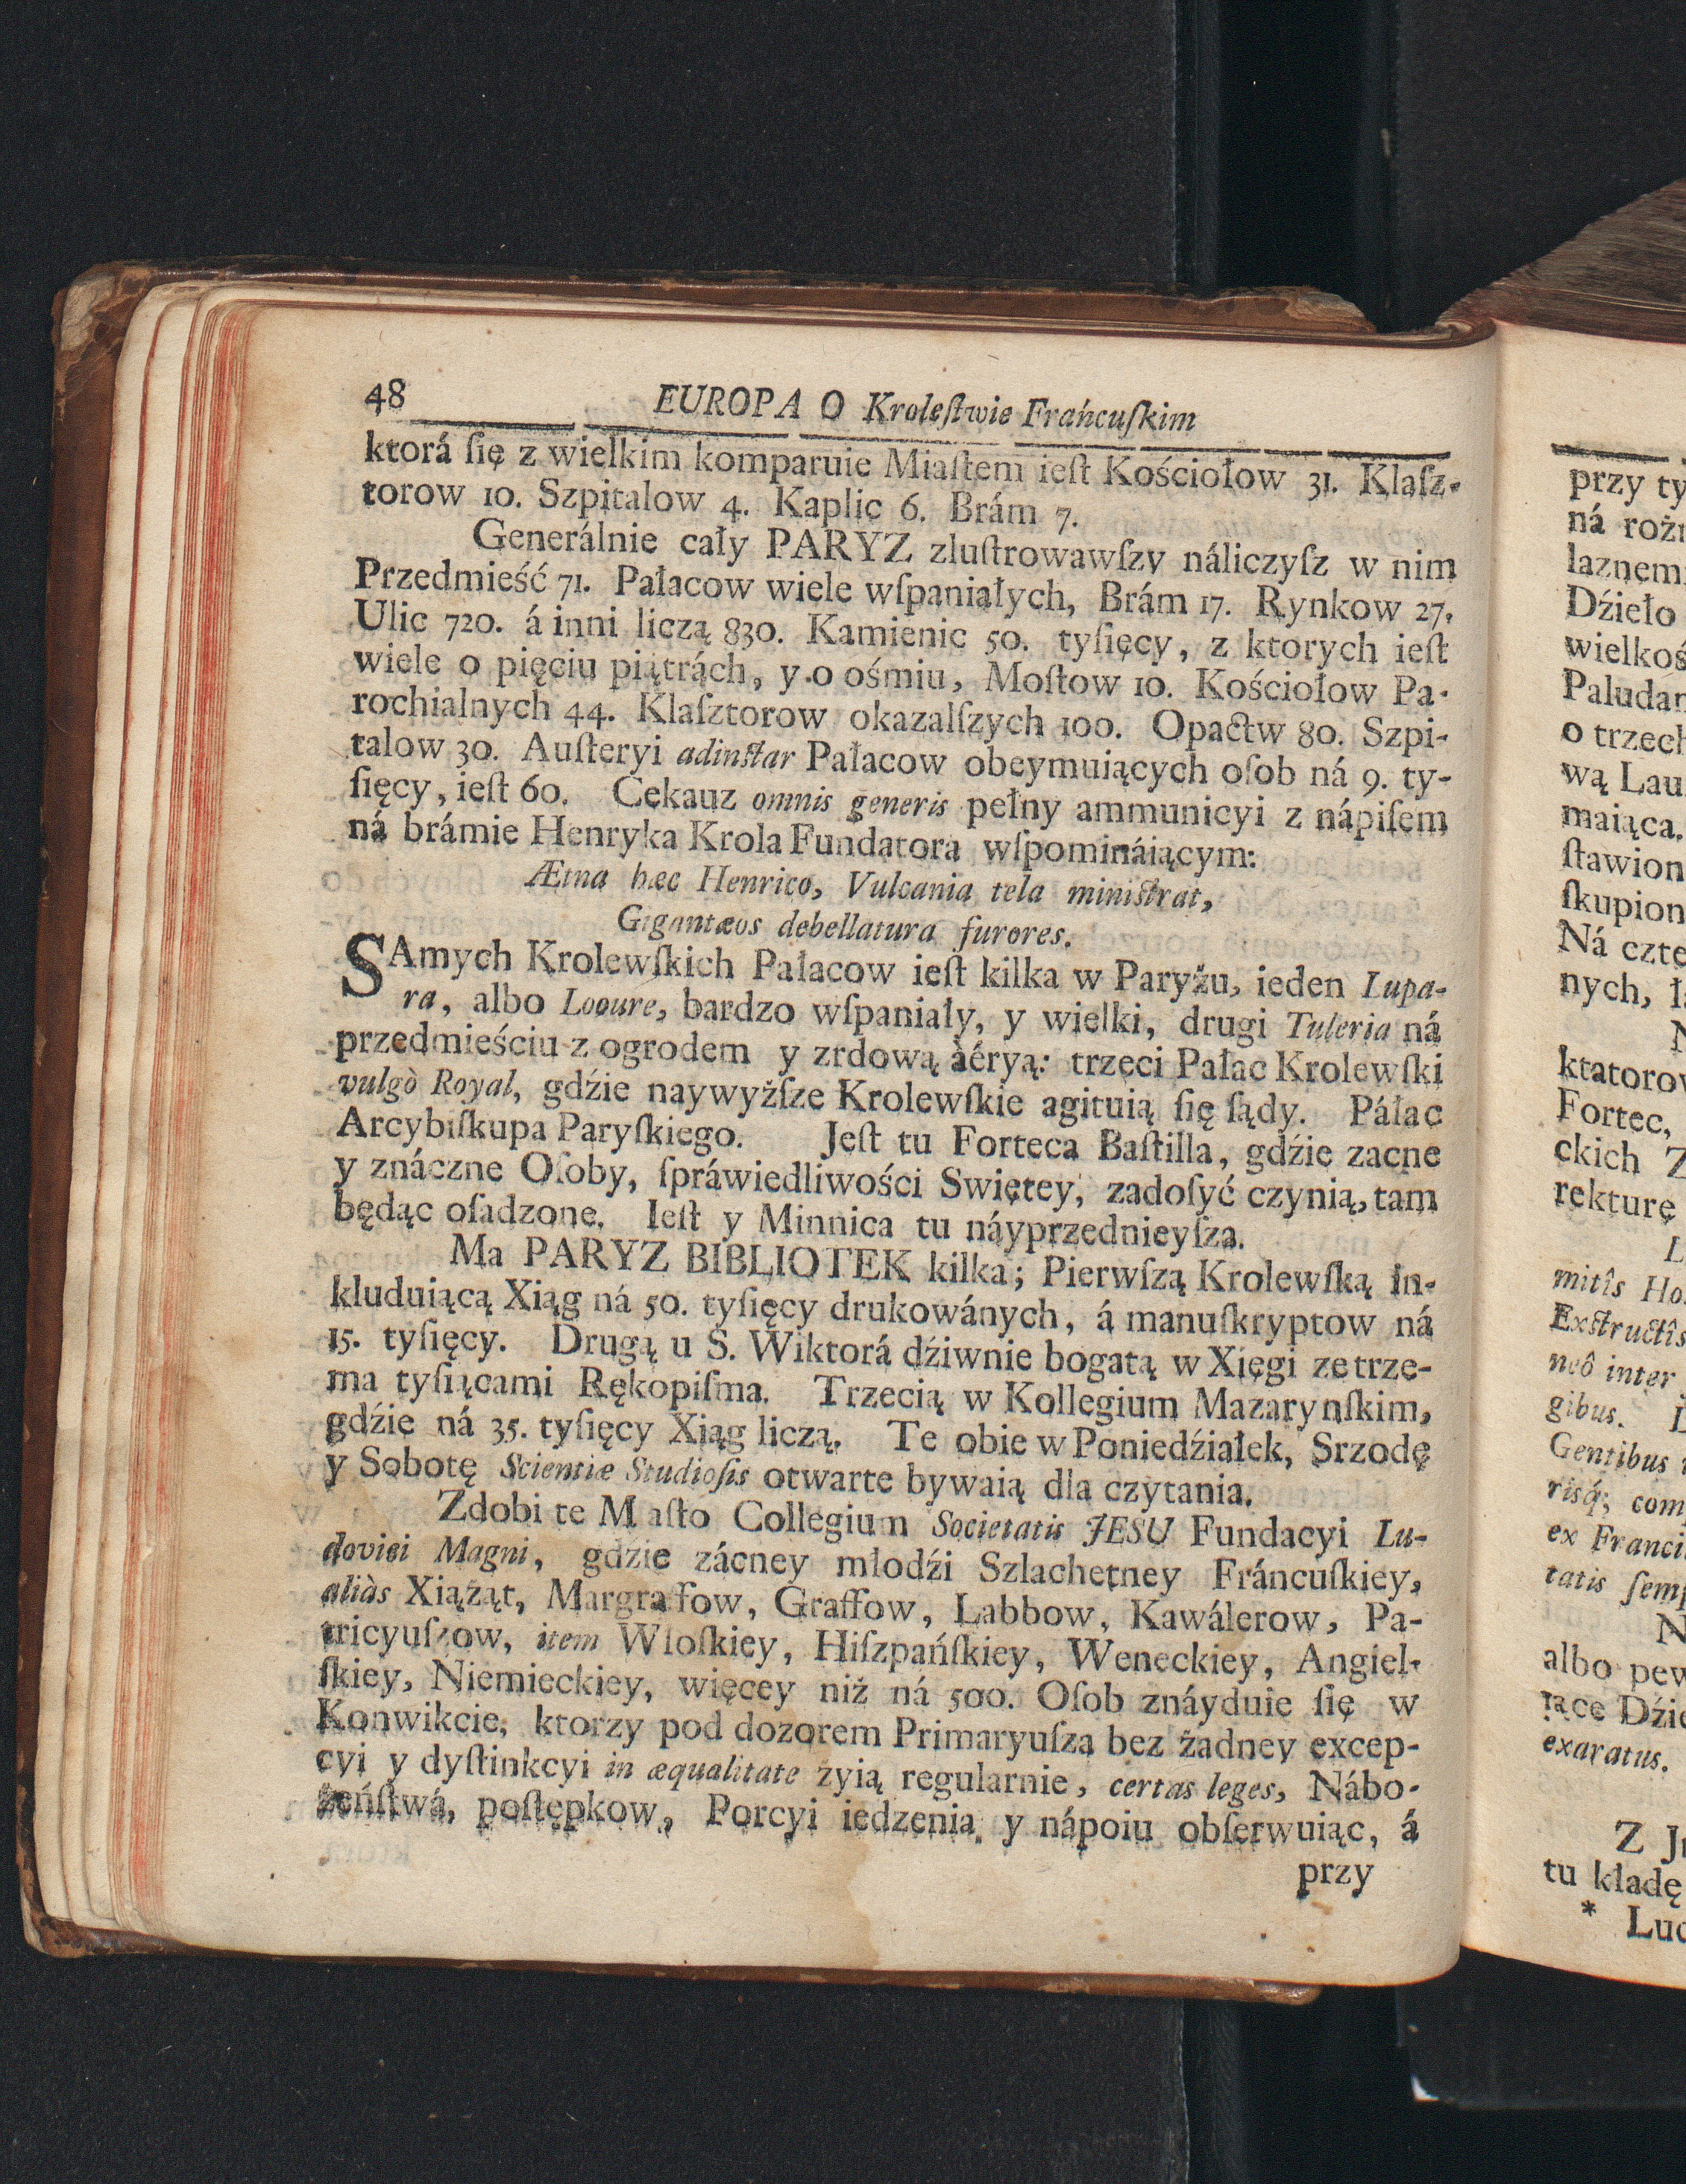 48 EUROPA O Kroleſtwie Fráńcuſkim
ktorá ſię z wielkim komparuie Miaſtem ieſt Kościołow 31. Klaſz-
torow 10. Szpitalow 4. Kaplic 6. Brám 7.
Generálnie cały PARYZ zluſtrowawſzy náliczyſz w nim
Przedmieść 71. Pałacow wiele wſpaniałych, Brám 17. Rynkow 27.
Ulic 720. á inni liczą 830. Kamienic 50. tyſięcy, z ktorych ieſt
wiele o pięciu piątrách, y o ośmiu, Moſtow 10. Kościołow Pa-
rochialnych 44. Klaſztorow okazalſzych 100. Opactw 80. Szpi-
talow 30. Auſteryi adinſtar Pałacow obeymuiących oſob ná 9. ty-
ſięcy, ieſt 60. Cekauz omnis generis pełny ammunicyi z nápiſem
ná brámie Henryka Krola Fundatora wſpomináiącym:
Ætna hæc Henrico, Vulcania tela miniſtrat,
Gigantæos debellatura furores.
SAmych Krolewſkich Pałacow ieſt kilka w Paryżu, ieden Lupa-
ra, albo Looure, bardzo wſpaniały, y wielki, drugi Tuleria ná
przedmieściu z ogrodem y zrdową àéryą: trzeci Pałac Krolewſki
vulgò Royal, gdźie naywyżſze Krolewſkie agituią ſię ſądy. Páłac
Arcybiſkupa Paryſkiego. Jeſt tu Forteca Baſtilla, gdźie zacne
y znáczne Oſoby, ſpráwiedliwości Swiętey, zadoſyć czynią, tam
będąc oſadzone. Ieſt y Minnica tu náyprzednieyſza.
Ma PARYZ BIBLIOTEK kilka; Pierwſzą Krolewſką in-
kluduiącą Xiąg ná 50. tyſięcy drukowánych, á manuſkryptow ná
15. tyſięcy. Drugą u S. Wiktorá dźiwnie bogatą w Xięgi ze trze-
ma tyſiącami Rękopiſma. Trzecią w Kollegium Mazarynſkim,
gdźie ná 35. tyſięcy Xiąg liczą. Te obie w Poniedźiałek, Srzodę
y Sobotę Scientiæ Studioſis otwarte bywaią dla czytania.
Zdobi te M aſto Collegium Societatis JESU Fundacyi Lu-
dovici Magni, gdzie zácney młodźi Szlachetney Fráncuſkiey,
aliàs Xiążąt, Margraffow, Graffow, Labbow, Kawálerow, Pa-
tricyuſzow, item Włoſkiey, Hiſzpańſkiey, Weneckiey, Angiel-
ſkiey, Niemieckiey, więcey niż ná 500. Oſob znáyduie ſię w
Konwikcie, ktorzy pod dozorem Primaryuſza bez żadney excep-
cyi y dyſtinkcyi in æqualitate żyią regularnie, certas leges, Nábo-
żeńſtwá, poſtępkow, Porcyi iedzenia y nápoiu obſerwuiąc, á
przy
przy ty
ná rożn
laznemi
Dźieło
wielkoś
Paludan
o trzech
wą Lau
maiąca.
ſtawion
ſkupion
Ná czte
nych, ła
N
ktatorow
Fortec,
ckich Z
rekturę
L
mitîs Ho
Exſtructîs
neô inter
gibus.
Gentibus
risq́; com
ex Franci
tatis ſemp
N
albo pew
iące Dźie
exaratus.
Z J
tu kładę
* Lud